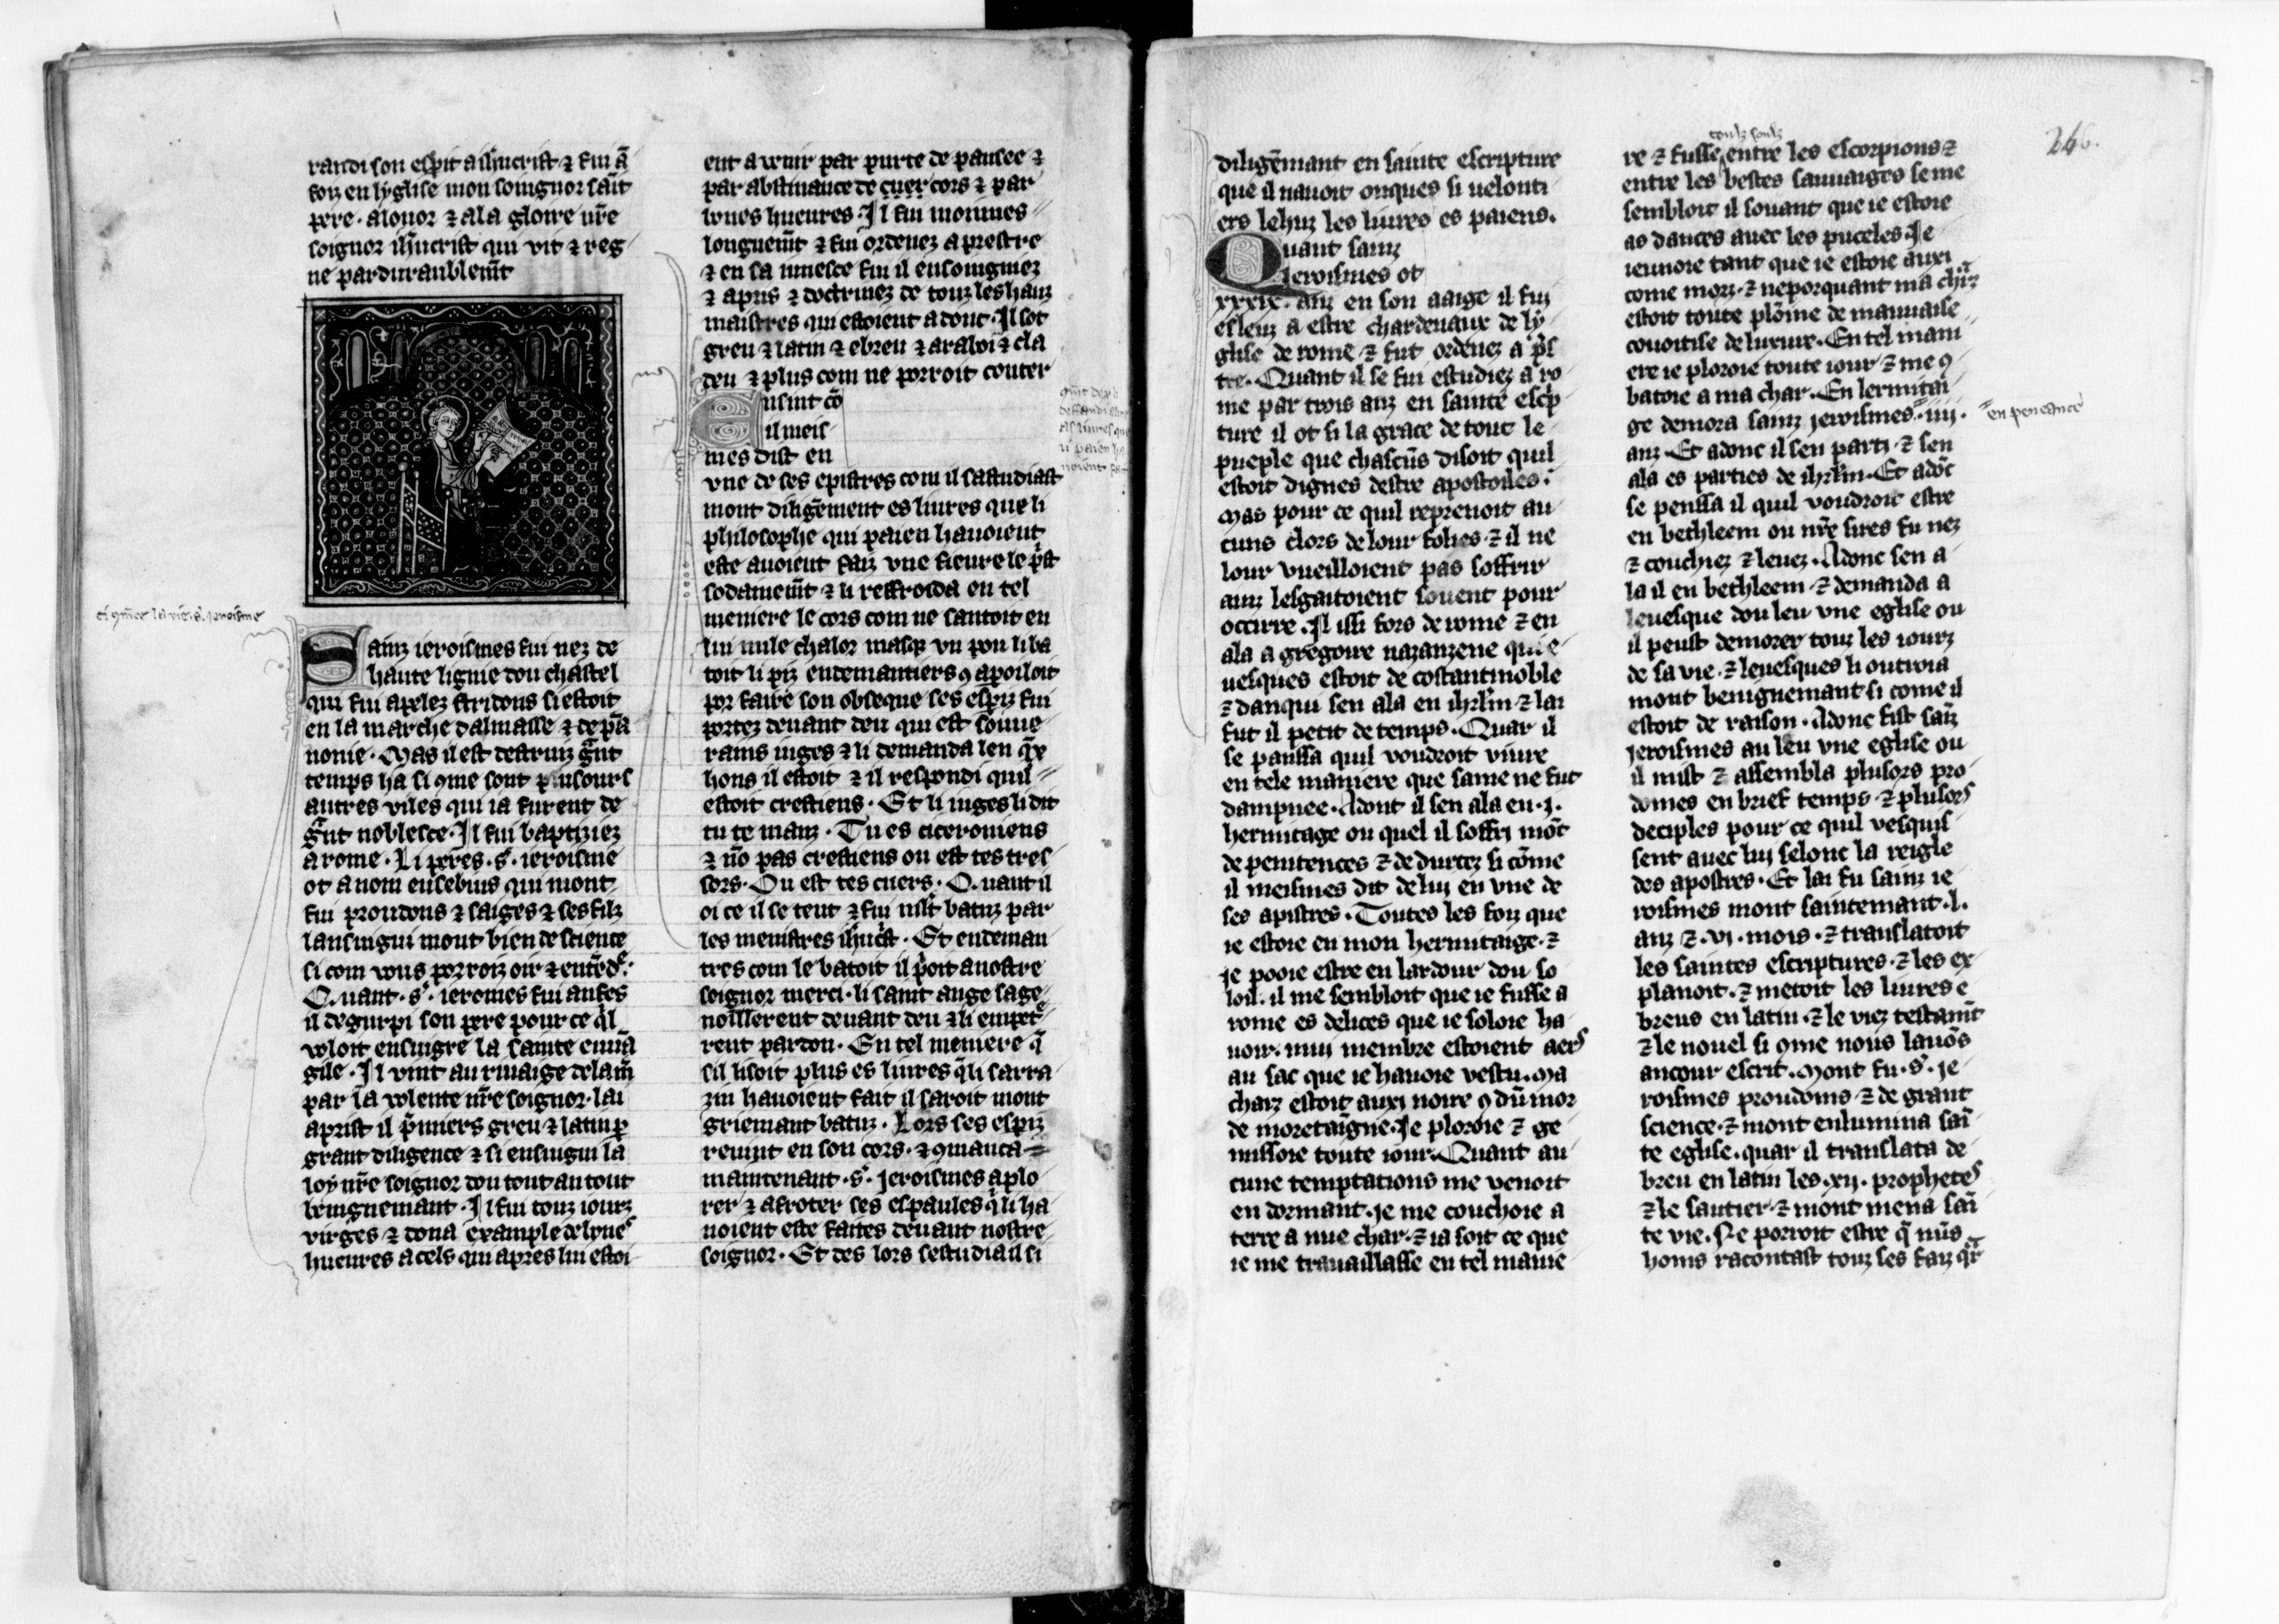 randi son esp̄it a ih̄ucrist ⁊ fui ā
foiz en lyglise mon soingnor sai̅t
pere · alonor ⁊ ala gloire nr̄e
soignor ih̄ucrist qui vit ⁊ reg
ne pardurablem̄t
ci 9mēce la vie .s. jeroisme
Sainz ieroismes fui nez de
haute lignie dou chastel
qui fui apelez stridons si estoit
en la marche dalmasse ⁊ de pā
nonie · Mas il est destruiz grn̄t
temps ha si 9me sont plusours
autres viles qui ia furent de
grn̄t noblesce · Il fui baptiziez
a rome · Li peres .s. ieroisme
ot a nom eusebius qui mont
fui proudons ⁊ saiges ⁊ ses filz
lansuigui mout bien de science
si com vous porroiz oir ⁊ entēdr̄
Quant .s. ieromes fui anfes
il degurpi son pere pour ce q̄l
voloit ensuigre la sainte euuā
gile · Il vint au riuaige de lam̄
par la volente nr̄e soignor · lai
aprist il p̄miers greu ⁊ latin p̄
grant diligence ⁊ si ensuigui la
loy nr̄e soignor dou tout au tout
benignemant · Il fui touz iourz
virges ⁊ dona example de bones
hueures a cels qui apres lui estoi
ent a venir par purte de pansee ⁊
par abstinance de cuer cors ⁊ par
bones hueures · Il fui moinnes
longuem̄t ⁊ fui ordenez a prestre
⁊ en sa iuuesce fui il ensoingniez
⁊ apris ⁊ doctrinez de touz les hauz
maistres qui estoient adonc · Il sot
greu ⁊ latin ⁊ ebreu ⁊ arabi ⁊ cla
deu ⁊ plus com ne porroit conter
Ensint cō
il meis
mes dist en
vne de ses epistres com il sastudiast
mont diligēment es liures que li
philosophe qui paien hauoient
este auoient faiz vne fieure le p̄st
sodainem̄t ⁊ li reffroida en tel
meniere le cors com ne santoit en
lui nule chalor masq̄ vn pou li ba
toit li piz endemantiers 9 apoiloit
por faire son obseque ses esp̄iz fui
portez deuant deu qui est soinue
rains iuges ⁊ li demanda len q̄x
hons il estoit ⁊ il respondi quil
estoit crestiens · Et li iuges li dit
tu te manz · Tu es ciceroniens
⁊ nō pas crestiens ou est tes tres
sors · Ou est tes cuers · Quant il
oi ce il se teut ⁊ fui illt̄ batuz par
les menistres ih̄ucst̄ · Et endeman
tres com le batoit il p̄oit a nostre
soignor merci · li saint ange sage
noillerent deuant deu ⁊ li empetr̄
rent pardon · En tel meniere q̄
sil lisoit plus es liures q̄ li sarra
zin hauoient fait il saroit mont
griemant batuz · Lors ses espiz
reuint en son cors · ⁊ 9mança
maintenant .s. jeroismes a plo
rer ⁊ a froter ses espaules q̄ li ha
uoient este faites deuant nostre
soignor · Et des lors sestudia il si
246.
diligēmant en sainte escripture
que il nauoit onques si uelonti
ers lehuz les liures es paiens.
Quant sainz
Jeroismes ot
xxxix . anz en son aaige il fuj
esleuz a estre chardenaux de ly
glise de rome ⁊ fut ordenez a p̄s
tre. Quant il se fui estudiez a ro
me par trois anz en sainte esc̄p
ture il ot si la grace de tout le
pueple que chascūs disoit quil
estoit dignes destre apostoiles:
Mas pour ce quil reprenoit au
cuns clers de lour folies · ⁊ il ne
lour vueilloient pas soffrir
ainz lesgaitoient souent pour
occirre. Il issi fors de rome ⁊ en
ala a gregoire nazanzene qui e
uesques estoit de costantinoble
⁊ danqui sen ala en ih̄rlm̄ · ⁊ lai
fut il petit de temps. Quar il
se panssa quil voudroit viure
en tele maniere que same ne fut
dampnee. Adont il sen ala en .j.
hermitage ou quel il soffri mōt
de penitences ⁊ de durtez si cōme
il meismes dit de luj en vne de
ses apistres. Toutes les foiz que
ie estoie en mon hermitaige · ⁊
je pooie estre en lardour dou so
loil. il me sembloit que ie fusse a
rome es delices que ie soloie ha
uoir. mui membre estoient aers
au sac que ie hauoie vestu. Ma
charz estoit auxi noire 9 dū mor
de moretaigne. Je ploroie ⁊ ge
missoie toute iour. Quant au
cune temptations me venoit
en dormant. je me couchoie a
terre a nue char. ⁊ ia soit ce que
ie me trauaillasse en tel manie
re ⁊ fusse entre les escorpions ⁊
entre les bestes sauuaiges se me
sembloit il souant que ie estoie
as dances auec les puceles. Je
ieunoie tant que ie estoie auxi
come morz · ⁊ neporquant ma chr̄z
estoit toute plōine de mauuaise
couoitise de luxure. En tel mani
ere ie ploroie toute iour ⁊ me 9
batoie a ma char. En lermitai
ge demora sainz jeroismes . iiij .
en peneance
anz. Et adonc il sen parti · ⁊ sen
ala es parties de ih̄rlm̄. Et adōc
se penssa il quil voudroit estre
en bethleem ou nr̄e sires fu nez
⁊ couchiez ⁊ leuez. Adonc sen a
la il en bethleem · ⁊ demanda a
leuesque dou leu vne eglise ou
il peust demorer touz les iourz
de sa vie. ⁊ leuesques li outroia
mont benignemant si come il
estoit de raison. Adonc fist saīz
jeroismes au leu vne eglise ou
il mist ⁊ assembla plusors pro
domes en brief temps · ⁊ plusors
deciples pour ce quil vesquis
sent auec luj selonc la reigle
des apostres. Et lai fu sainz ie
roismes mont saintemant .l.
anz ⁊ .vj. mois. ⁊ translatoit
les saintes escriptures. ⁊ les ex
planoit. ⁊ metoit les liures e
breus en latin. ⁊ le viez testamt̄
⁊ le nouel si 9me nous lauōs
ancour escrit. Mont fu .s. je
roismes proudoms ⁊ de grant
science. ⁊ mont enlumina sai̅
te eglise. quar il translata de
breu en latin les .xij. prophetes
⁊ le sautier ⁊ mont mena sai̅
te vie. Ne porroit estre q̄ nūs
homs racontast touz ses faiz q̄r